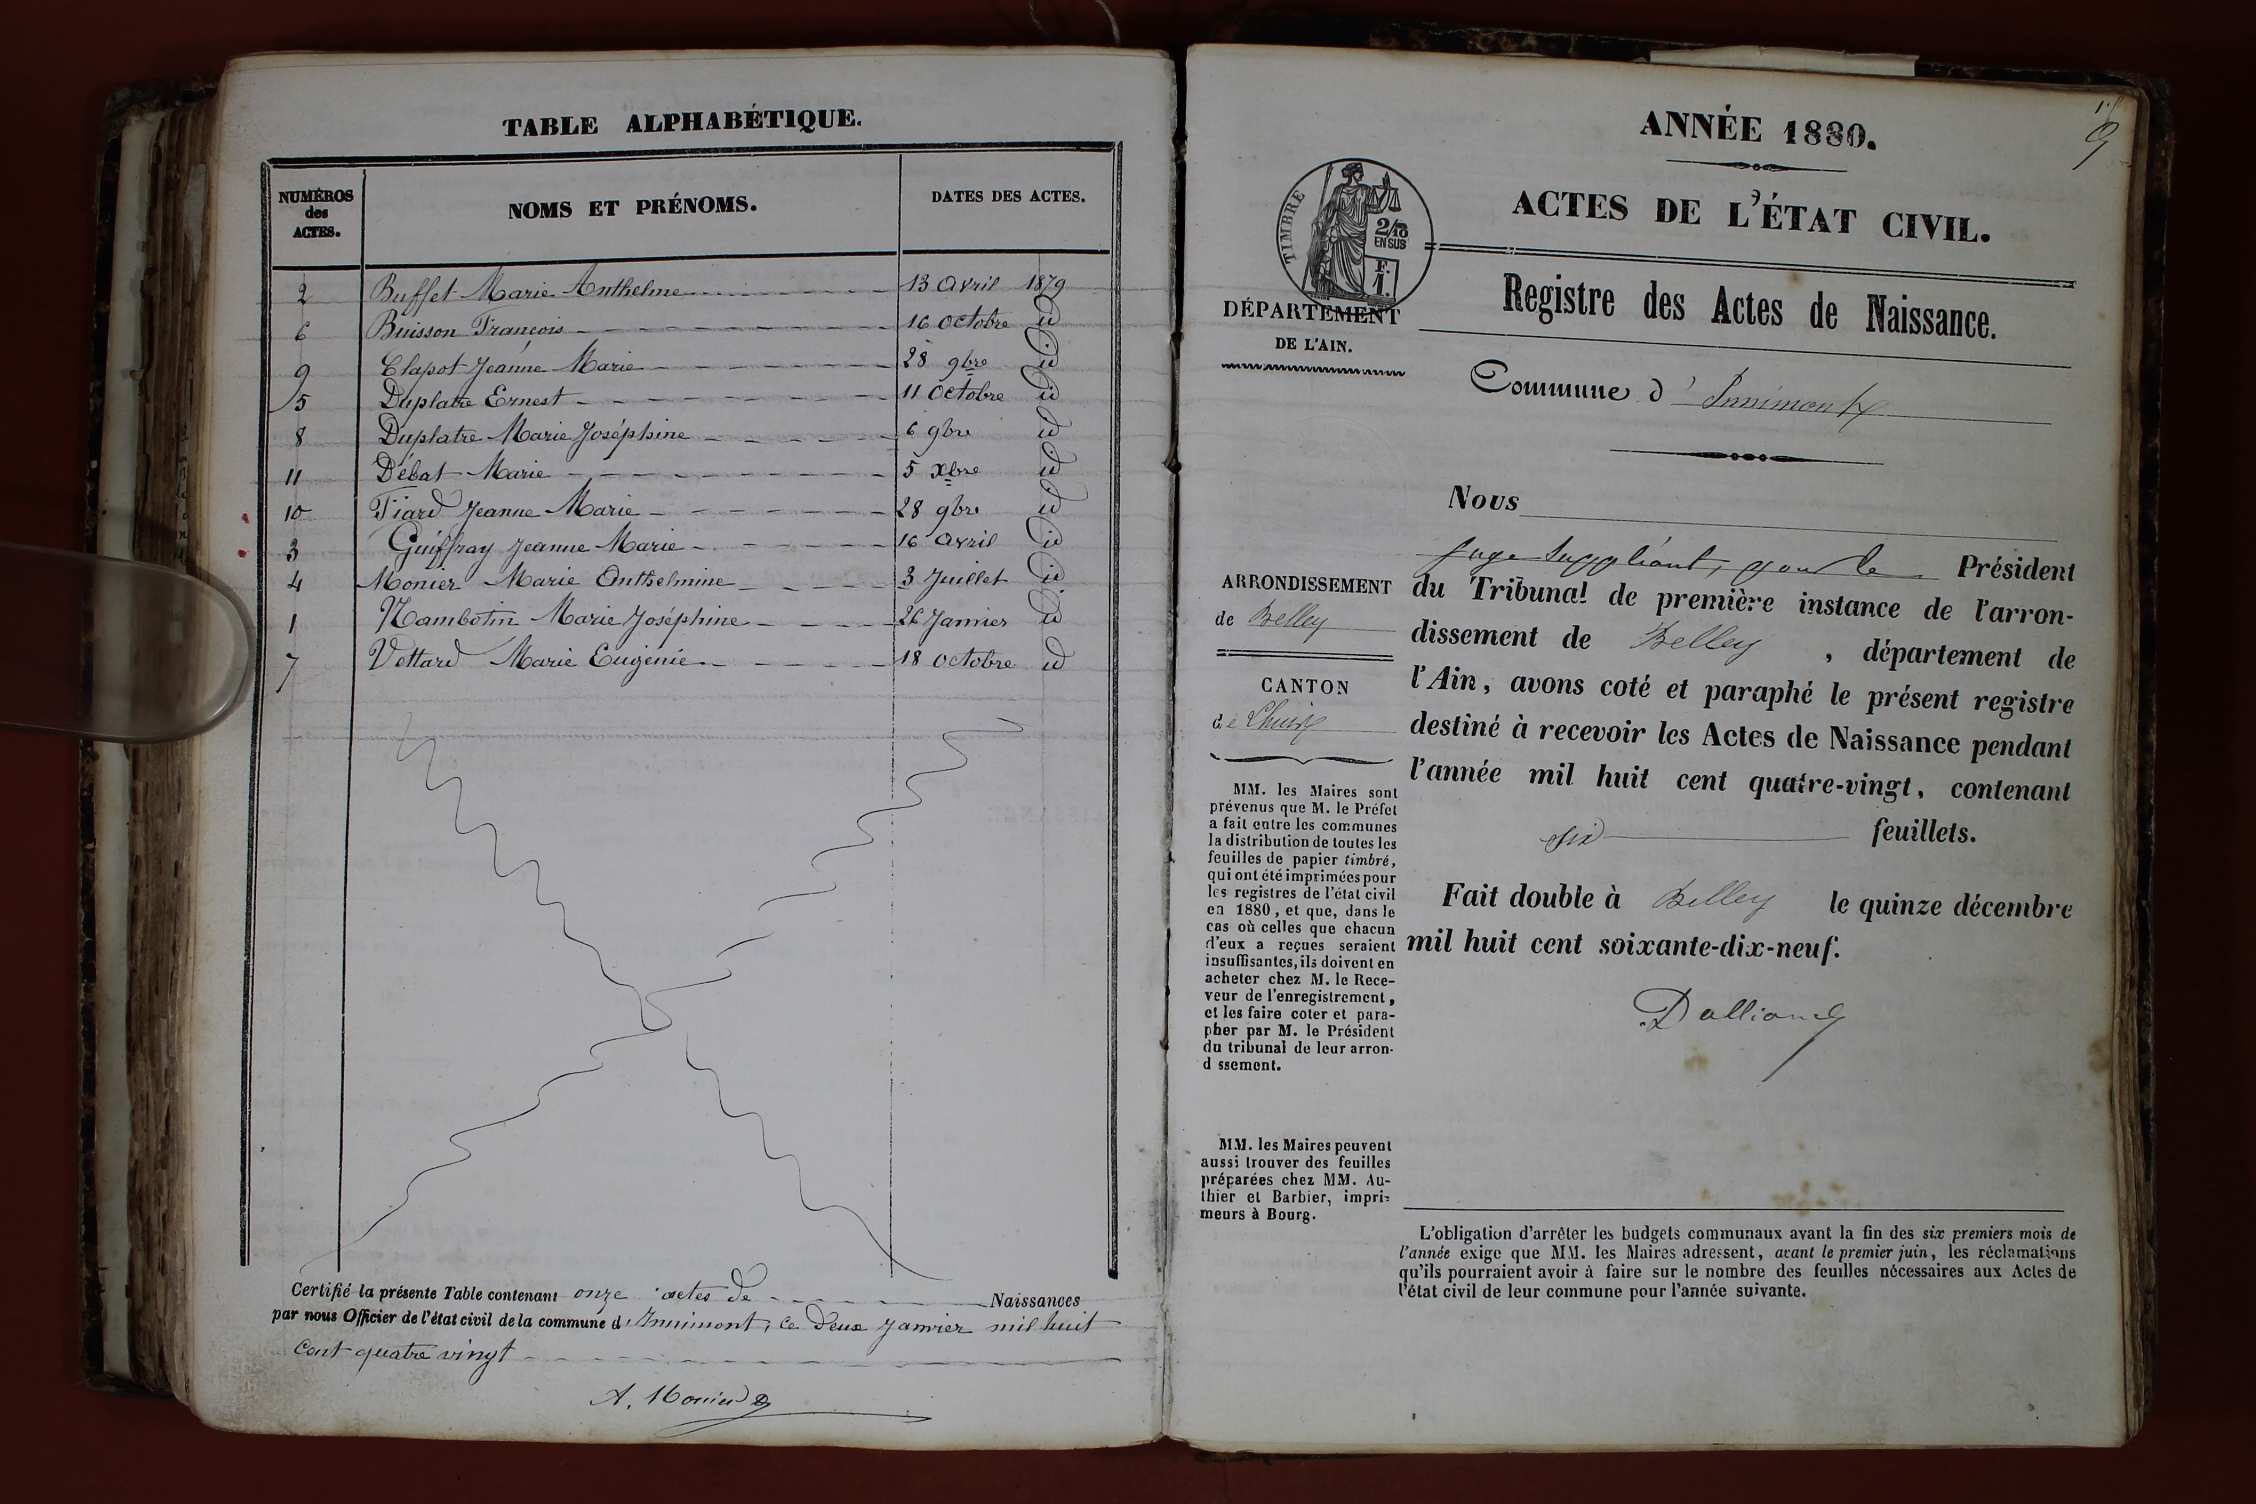 TABLE ALPHABÉTIQUE.
NUMÉROS
des
ACTES.
NOMS ET PRÉNOMS.
DATES DES ACTES.
2 Buffet Marie Anthelme 13 avril 1879
6 Buisson François 16 octobre id
9 Clapot Jeanne Marie 28 9bre id
5 Duplatre Ernest 11 Octobre id
8 Duplatre Marie Joséphine 6 9bre id
11 Débat Marie 5 xbre id
10 Tiard Jeanne Marie 28 9bre id
3 Guiffray Jeanne Marie 16 avril id
4 Monier Marie Anthelmine 3 Juillet id
1 Nambotin Marie Joséphine 26 Janvier id
7 Vettard Marie Eugénie 18 octobre id
Certifié la présente Table contenant onze actes de Naissances
par nous Officier de l'état civil de la commune d'Innimont, ce deux Janvier mil huit
cent quatre vingt
A. Monier
ANNÉE 1880.
ACTES DE L'ÉTAT CIVIL.
TIMBRE
2/10
EN SUS
F.
1.
DÉPARTEMENT
DE L'AIN.
Registre des Actes de Naissance.
Commune d'Innimont
Nous
Juge Suppléant, pour le Président
du Tribunal de première instance de l'arron-
dissement de Belley, département de
l'Ain, avons coté et paraphé le présent registre
destiné à recevoir les Actes de Naissance pendant
l'année mil huit cent quatre-vingt, contenant
six feuillets.
Fait double à Belley le quinze décembre
mil huit cent soixante-dix-neuf.
ARRONDISSEMENT
de Belley
CANTON
de Lhuis
MM. les Maires sont
prévenus que M. le Préfet
a fait entre les communes
la distribution de toutes les
feuilles de papier timbré,
qui ont été imprimées pour
les registres de l'état civil
en 1880, et que, dans le
cas où celles que chacun
d'eux a reçues seraient
insuffisantes, ils doivent en
acheter chez M. le Rece-
veur de l'enregistrement,
et les faire coter et para-
pher par M. le Président
du tribunal de leur arron-
d ssement.
MM. les Maires peuvent
aussi trouver des feuilles
préparées chez MM. Au-
thier et Barbier, impri-
meurs à Bourg.
L'obligation d'arrêter les budgets communaux avant la fin des six premiers mois de
l'année exige que MM. les Maires adressent, avant le premier juin, les réclamations
qu'ils pourraient avoir à faire sur le nombre des feuilles nécessaires aux Actes de
l'état civil de leur commune pour l'année suivante.